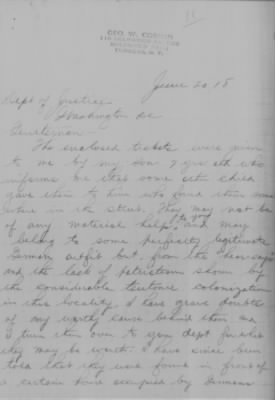 GEO. W. CO
YONKERS, N. Y.
June 20 18
Dept of Justice
Washington DC
Gentlemen -
The enclosed tickets were given
to me by my son 7 yrs old who
informs me that some other child
gave them to him who found them some
where in the street. They may not be
of any material help to you and may
belong to some perfectly legitimate
German outfit but from the "hearsay"
and the lack of patriotism shown by
the considerable teutonic colonization
in this locality I have grave doubts
of any worthy cause behind them and
I turn them over to your dept for what
they may be worth. I have since been
told that they were found in front of
a certain house occupied by Germans